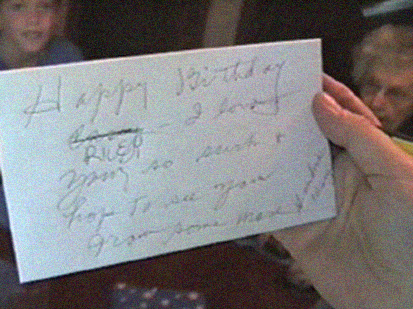 Happy Birthday
I love
RILEY
you so much &
hope to see you
grow some more &